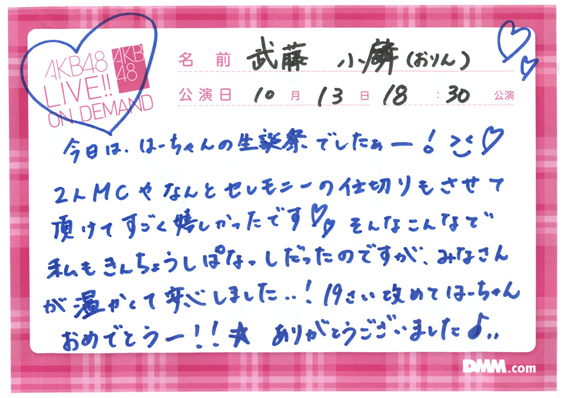 AKB48
LIVE!!
ON DEMAND
AKB
48
名前 武藤 小麟(おりん)
公演日 10月13日 18:30 公演
今日は、はーちゃんの生誕祭でしたぁー!><♡
2人MCやなんとセレモニーの仕切りもさせて
頂けてすごく嬉しかったです♡♡ そんなこんなで
私もきんちょうしぱなっしだったのですが、みなさん
が温かくて安心しました..! 19さい改めてはーちゃん
おめでとうー!!☆ ありがとうございました♪..
DMM.com